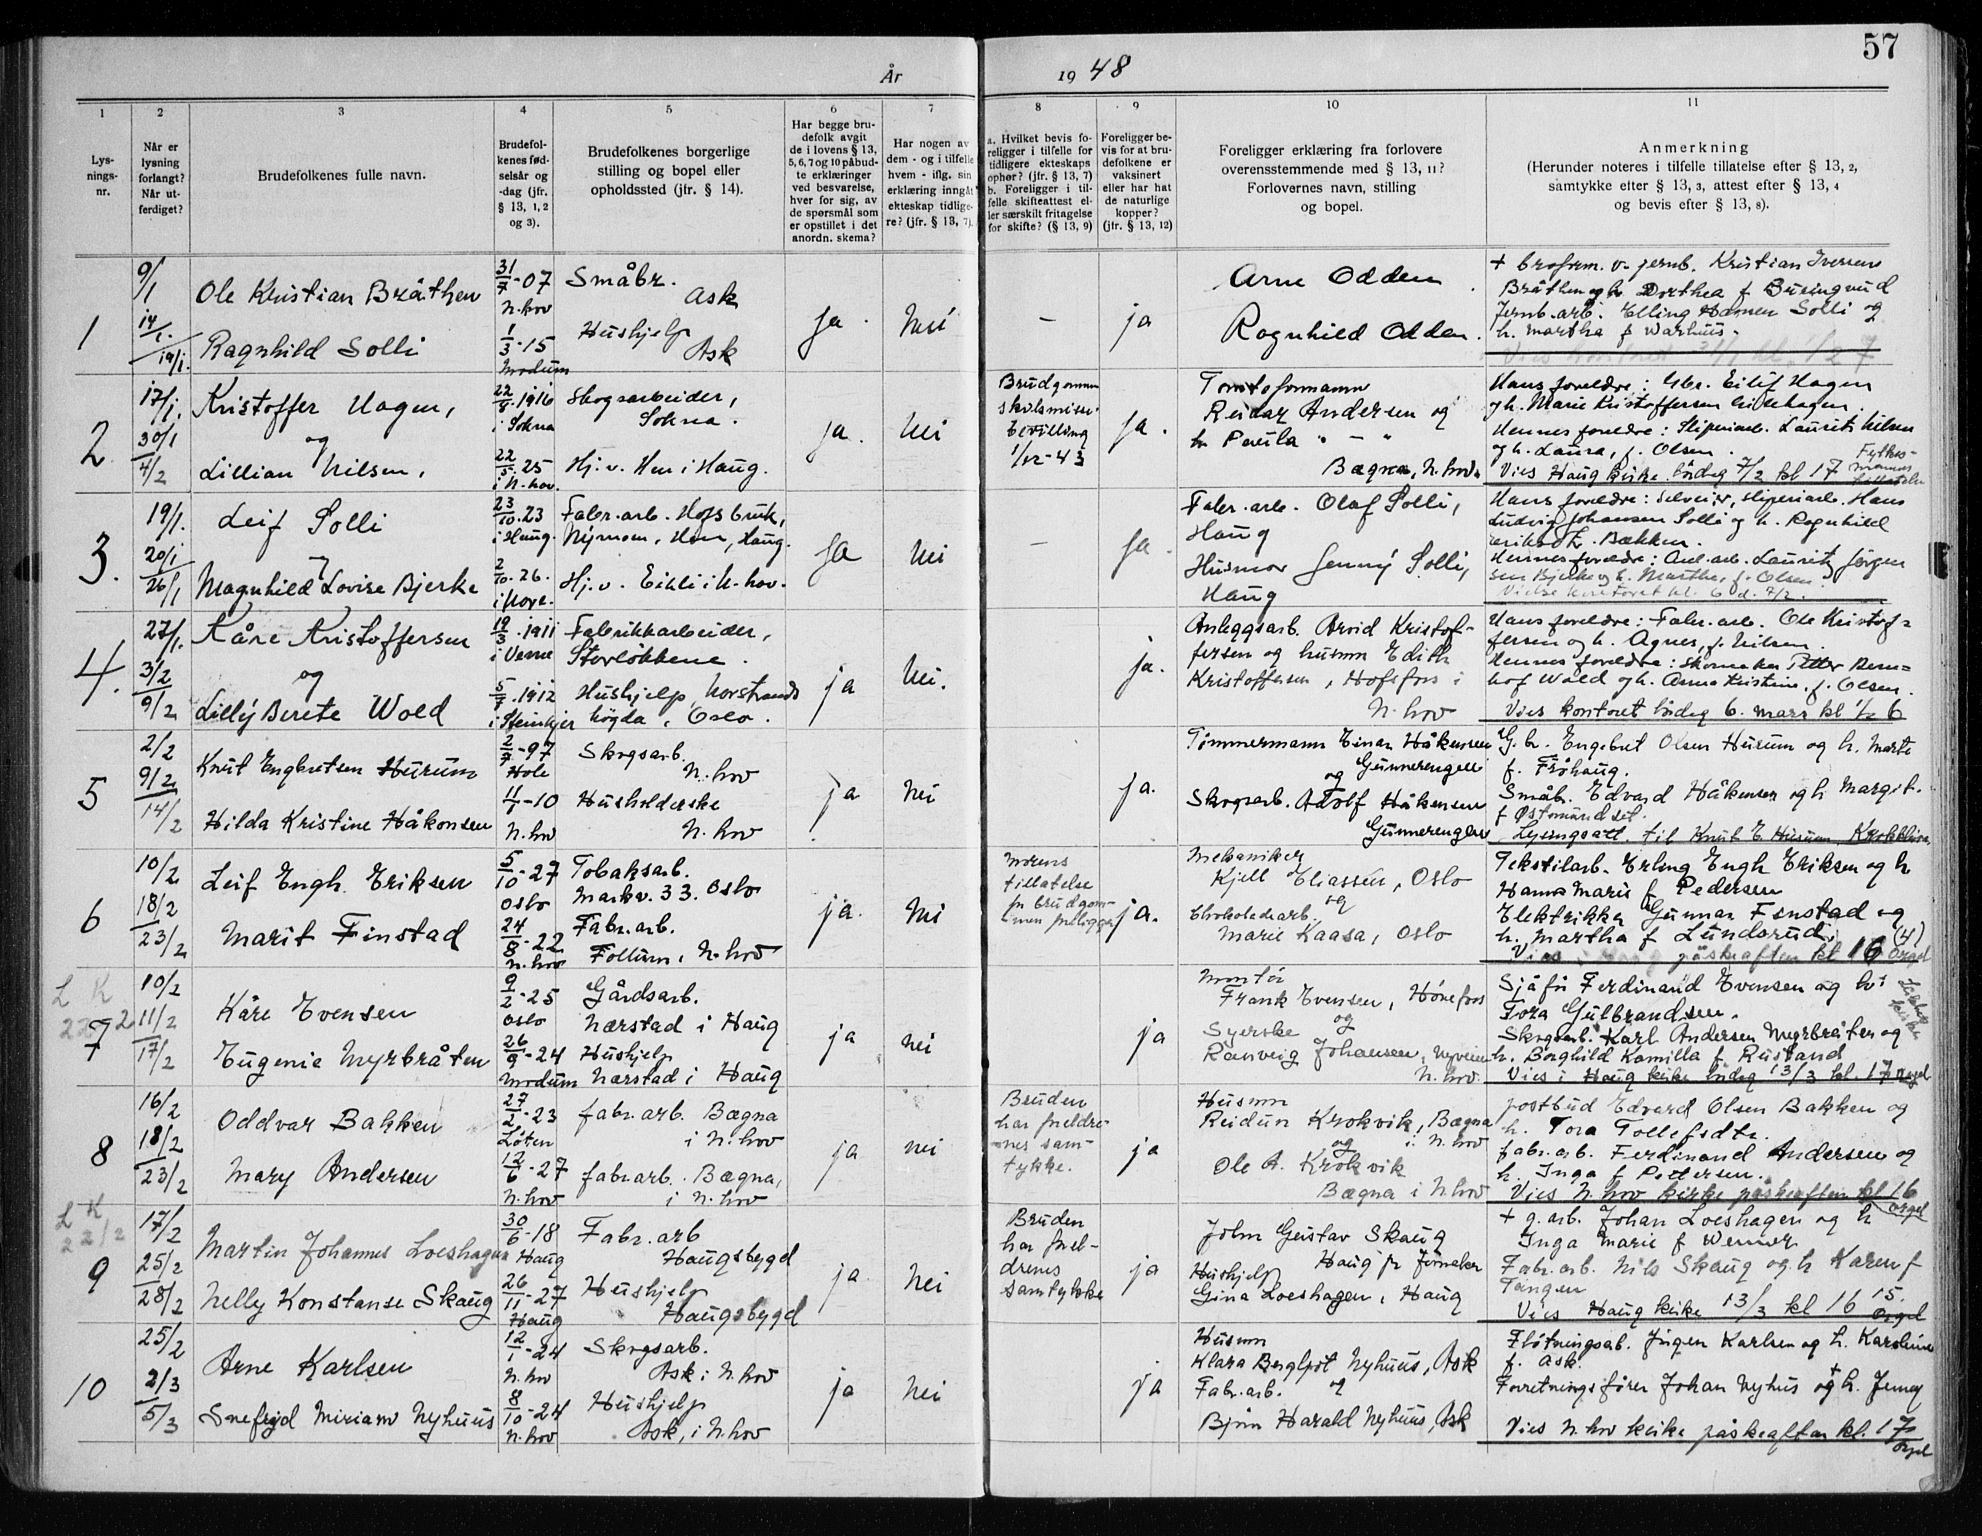 År
19 48
57
1
Lys-
nings-
nr.
2
Når er
lysning
forlangt?
Når ut-
ferdiget?
3
Brudefolkenes fulle navn.
4
Brudefol-
kenes fød-
selsår og
-dag (jfr.
§ 13, 1, 2
og 3).
5
Brudefolkenes borgerlige
stilling og bopel eller
opholdssted (jfr. § 14).
6
Har begge bru-
defolk avgit
de i lovens § 13,
5, 6, 7 og 10 påbud-
te erklæringer
ved besvarelse,
hver for sig, av
de spørsmål som
er opstillet i det
anordn. skema?
7
Har nogen av
dem - og i tilfelle
hvem - iflg. sin
erklæring inngåt
ekteskap tidlige-
re? (jfr. § 13, 7).
8
a. Hvilket bevis fo-
religger i tilfelle for
tidligere ekteskaps
ophør? (jfr. § 13, 7)
b. Foreligger i til-
felle skifteattest el-
ler særskilt fritagelse
for skifte? (§ 13, 9)
9
Foreligger be-
vis for at bru-
defolkene er
vaksinert
eller har hat
de naturlige
kopper?
(jfr. § 13, 12)
10
Foreligger erklæring fra forlovere
overensstemmende med § 13, 11?
Forlovernes navn, stilling
og bopel.
11
Anmerkning
(Herunder noteres i tilfelle tillatelse efter § 13, 2,
samtykke efter § 13, 3, attest efter § 13, 4
og bevis efter § 13, 8).
1
9/1
14/1.
19/1.
Ole Kristian Bråthen
Ragnhild Solli
31/7-07
N.hov
1/3-15
Modum
Småbr.
Ask
Hushjelp
Ask
Ja.
Nei
-
ja
Arne Odden
Ragnhild Odden.
+ broform. v. jernb. Kristian Iversen
Bråthen og h. Dorthea f Busingrud
Jernb.arb. Elling Hansen Solli og
h. Martha f Warhus.
2
17/1.
30/1
4/2
Kristoffer Hagen,
og
Lillian Nilsen,
22/8.1916
i Sokna
22/5.25
i N.hov.
Skogsarbeider,
Sokna.
Hj. v. Hen i Haug.
Ja.
Nei
Brudgommen
skilsmisse-
bevilling
1/12-43
Ja.
Tomteformann
Reidar Andersen og
h. Paula " - "
Bægna, N.hov.
Hans foreldre: Gbr. Eilif Hagen
og h. Marie Kristoffersen
Hennes foreldre: Sliperiarb. Laurits Nilsen
og h. Laura, f. Olsen.
Vies Haug kirke lördag 7/2 kl 17
Fylkes-
mannens
tillatelse
3.
19/1.
20/1
26/1
Leif Solli
og
Magnhild Lovise Bjerke
23/10.23
i Haug.
2/10.26.
i Nore.
Fabr.arb. Hofsbruk,
Nymoen, Hen, Haug.
Hj. v. Eikli i N.hov.
Ja
Nei
-
Ja.
Fabr.arb. Olaf Solli,
Haug
Husmor Jenny Solli,
Haug
Hans foreldre: selveier, sliperiarb. Hans
Ludvig Johansen Solli og h. Ragnhild
Bækken.
Hennes foreldre: Anl.arb. Laurits Jörgen
sen Bjerke og h. Martha, f. Olsen.
Vielse kontoret kl. 6 d. 7/2.
4.
27/1.
3/2
9/2
Kåre Kristoffersen
og
Lilly Berete Wold
19/3.1911
i Verne
5/7.1912
i Steinkjer
Fabrikkarbeider,
Storløkkene.
Hushjelp, Norstrands
högda, Oslo.
ja
Nei.
ja.
Anleggsarb. Arvid Kristof-
fersen og husmor Edith
Kristoffersen, Hofsfoss i
N.hov
Hans foreldre: Fabr.arb. Ole Kristof-
fersen og h. Agnes, f. Nilsen.
Hennes foreldre: Skomaker Petter Bern-
hof Wold og h. Anna Kristine, f. Olsen.
Vies kontoret lördag 6. mars kl 1/2 6
5
2/2
9/2
14/2
Knut Engbretsen Hurum
Hilda Kristine Håkonsen
2/7-97
Hole
11/1-10
N.hov
Skogsarb.
N.hov
Husholderske
N.hov
ja
Nei
ja.
Tømmermann Einar Håkensen
Gunnerengen
og
Skogsarb. Adolf Håkensen
Gunnerengen
G.br. Engebret Olsen Hurum og h. Marte
f. Frøhaug.
Småbr. Edvard Håkensen og h Margit.
Lysingsatt. til Knut E Hurum, Krokkleiva
6
10/2
18/2
23/2
Leif Engh. Eriksen
Marit Finstad
5/10-27
Oslo
24/8-22
N.hov
Tobaksarb.
Markv. 33. Oslo
Fabr.arb.
Follum, N.hov
ja.
Nei
Morens
tillatelse
for brudgom-
men foreligger
ja.
Mekaniker
Kjell Eliassen, Oslo
og
Chokoladearb.
Marie Kaasa, Oslo
Tekstilarb. Erling Engh Eriksen og h
Hanna Marie f Pedersen
Elektriker Gunnar Finstad og
h. Martha f Lundsrud. (4)
Vies påskeaften kl 16 Orgel
L K
22/2
7
10/2
11/2
17/2
Kåre Evensen
Eugenie Myrbråten
9/2-25
Oslo
26/9-24
Modum
Gårdsarb.
Nærstad i Haug
Hushjelp
Nærstad i Haug
ja
nei
ja
Montør
Frank Evensen, Hönefoss
og
Syerske
Ranveig Johansen, Nyveien
N.hov.
Sjåfør Ferdinand Evensen og h.
Tora Gulbrandsen.
Skogsarb. Karl Andersen Myrbråten og
h. Borghild Kamilla f Rustand
Vies i Haug kirke lördag 13/3 kl. 17 Orgel
8
16/2
18/2
23/2
Oddvar Bakken
Mary Andersen
27/2-23
Løten
12/6-27
N.hov
fabr.arb. Bægna
i N.hov
fabr.arb. Bægna,
i N.hov
ja
nei
Bruden
har foreldre-
nes sam-
tykke.
ja
Husmor
Reidun Krokvik, Bægna
og i N.hov
Ole A. Krokvik
Bægna i N.hov
postbud Edvard Olsen Bakken og
h. Tora Tollefsdtr.
fabr.arb. Ferdinand Andersen og
h. Inga f Pettersen.
Vies N.hov kirke påskeaften kl 16
Orgel
L K
22/2
9
17/2
25/2
28/2
Martin Johannes Loeshagen
Nelly Konstanse Skaug
30/6-18
Haug
26/11-27
Haug
Fabr.arb
Haugsbygd
Hushjelp
Haugsbygd
ja
Nei
Bruden
har forel-
drenes
samtykke
ja
John Gustav Skaug
Haug pr Jönaker
Hushjelp
Gina Loeshagen, Haug
+ g.arb. Johan Loeshagen og h
Inga Marie f Werner
Fabr.arb. Nils Skaug og h Karen f
Tangen
Vies Haug kirke 13/3 kl 16 15.
Orgel
10
25/2
2/3
5/3
Arne Karlsen
Snefryd Miriam Nyhuus
12/1-24
N.hov
8/10-24
N.hov
Skogsarb.
Ask i N.hov
Hushjelp
Ask, i N.hov
ja
Nei
ja
Husmor
Klara Bergljot Nyhuus, Ask
Fabr.arb. og
Bjørn Harald Nyhuus, Ask
Fløtningsarb. Jörgen Karlsen og h. Karoline
f. Ask.
Forretningsfører Johan Nyhus og + h. Jenny
Vies N.hov kirke påskeaften kl. 17
Orgel